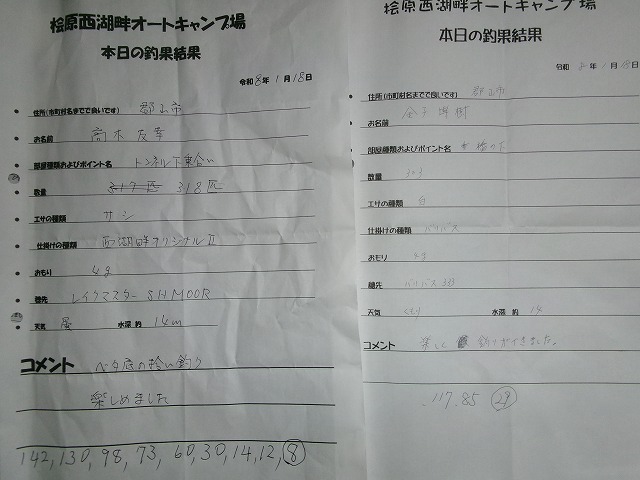 桧原西湖畔オートキャンプ場
本日の釣果結果
令和 8年 1月 18日
住所(市町村名までで良いです) 郡山市
お名前 高木 友幸
部屋種類およびポイント名 トンネル下乗合い
数量 317匹 318匹
エサの種類 サシ
仕掛けの種類 西湖畔オリジナルⅡ
おもり 4g
穂先 レイクマスター SH MOOR
天気 曇 水深 約 14m
コメント ベタ底の拾い釣り
楽しめました
142, 130, 98, 73, 60, 30, 14, 12, 8
桧原西湖畔オートキャンプ場
本日の釣果結果
令和 年 1月 18日
住所(市町村名までで良いです) 郡山市
お名前 金子 樹
部屋種類およびポイント名 橋の下
数量 303
エサの種類 白
仕掛けの種類 バリバス
おもり
穂先 バリバス
天気 くもり 水深 約 14
コメント 楽しく 釣りができました。
117. 85 29